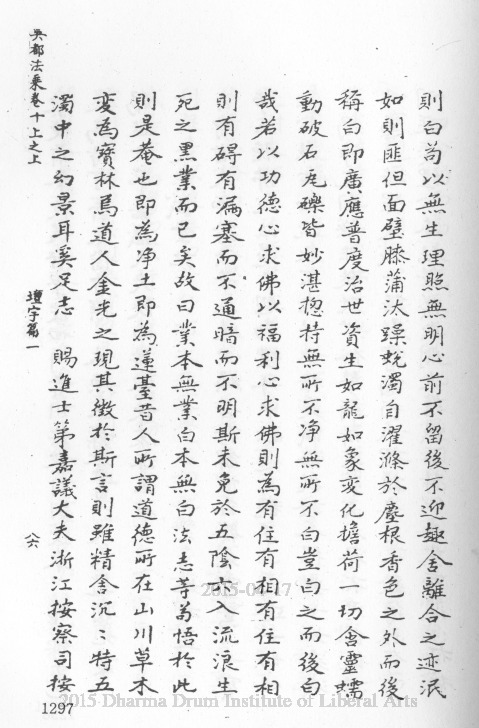 則白苟以無生理照無明心前不留後不迎趣舍離合之迹泯
如則匪但面壁膝蒲汰躁蛻濁自濯滌於塵根香色之外而後
稱白即廣應普度治世資生如龍如象変化擔荷一切含靈蠕
動破石瓦礫皆妙湛揔持無所不淨無所不白豈白之而後白
哉若以功德心求佛以福利心求佛則為有住有相有住有相
則有碍有漏塞而不通暗而不明斯未免於五陰六入流浪生
死之黒業而已矣故曰業本無業白本無白法志等苟悟於此
則是菴也即為净土即為蓮臺昔人所謂道德所在山川草木
変為寳林馬道人金光之現其徴於斯言則雖精舍沉〻特五
濁中之幻景耳奚足志　賜進士第嘉議大夫浙江按察司按
吳都法乘卷十上之上
壇宇篇一
〈六〉
1297
2015-04-17
2015 Dharma Drum Institute of Liberal Arts